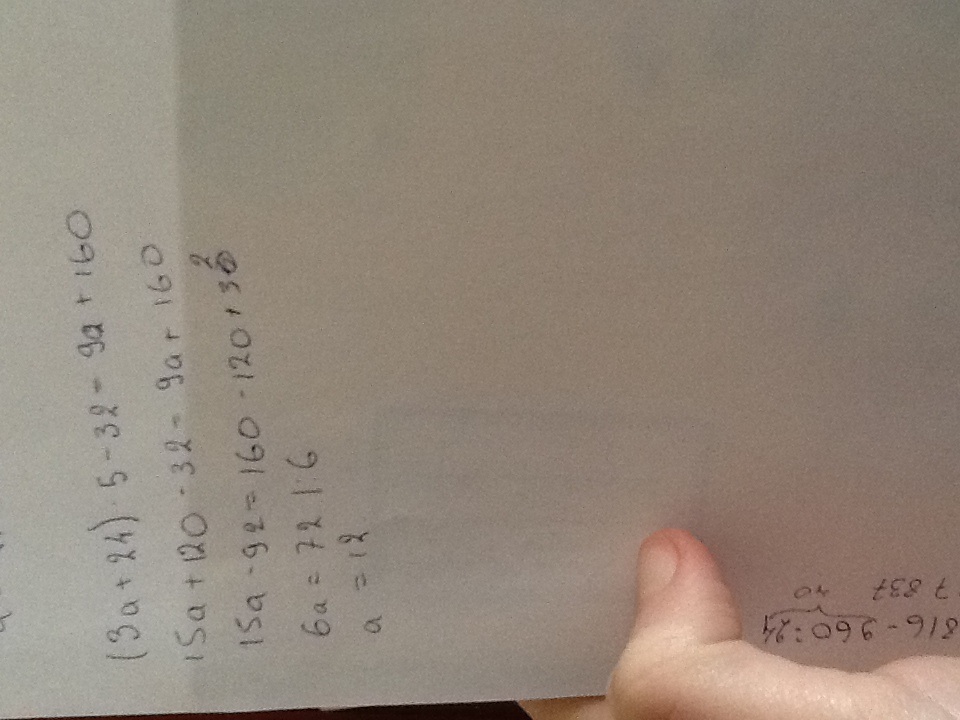 (3a + 24) · 5 - 32 = 9a + 160
15a + 120 - 32 = 9a + 160
15a - 9a = 160 - 120 + 32
6a = 72 |:6
a = 12
816 - 960 : 24
40
7 837